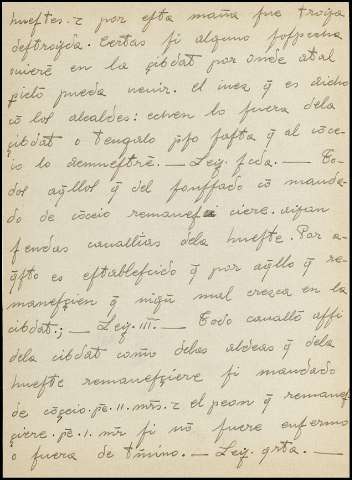 huestes. τ por esta mañа fue troya
destroyda. Certas si alguno sospecha
ouiere en la çibdat por onde atal
pleito pueda uenir. el iuez q̄ es dicho
cō los alcaldes: echen lo fuera dela
çibdat o tengalo p̄so fasta q̄ al cōce-
io lo demuestrē. — Ley. scda. — To-
dos aq̄llos q̄ del fonssado cō manda-
do de cōceio remanesciere. ayan
sendas cauallias dela hueste. Por a-
q̄sto es establescido q̄ por aq̄llo q̄ re-
manesçien q̄ nīgū mal cresca en la
cibdat.; — Ley. III. — Todo cauallō assi
dela cibdāt como delas aldeas q̄ dela
hueste remanesçiere si mandado
de cōçeio. pē. II. mrs. τ el peon q̄ remanes
çiere. pē. I. mr si nō fuere enfermo
o fuera de tmino. — Ley. qrta. —